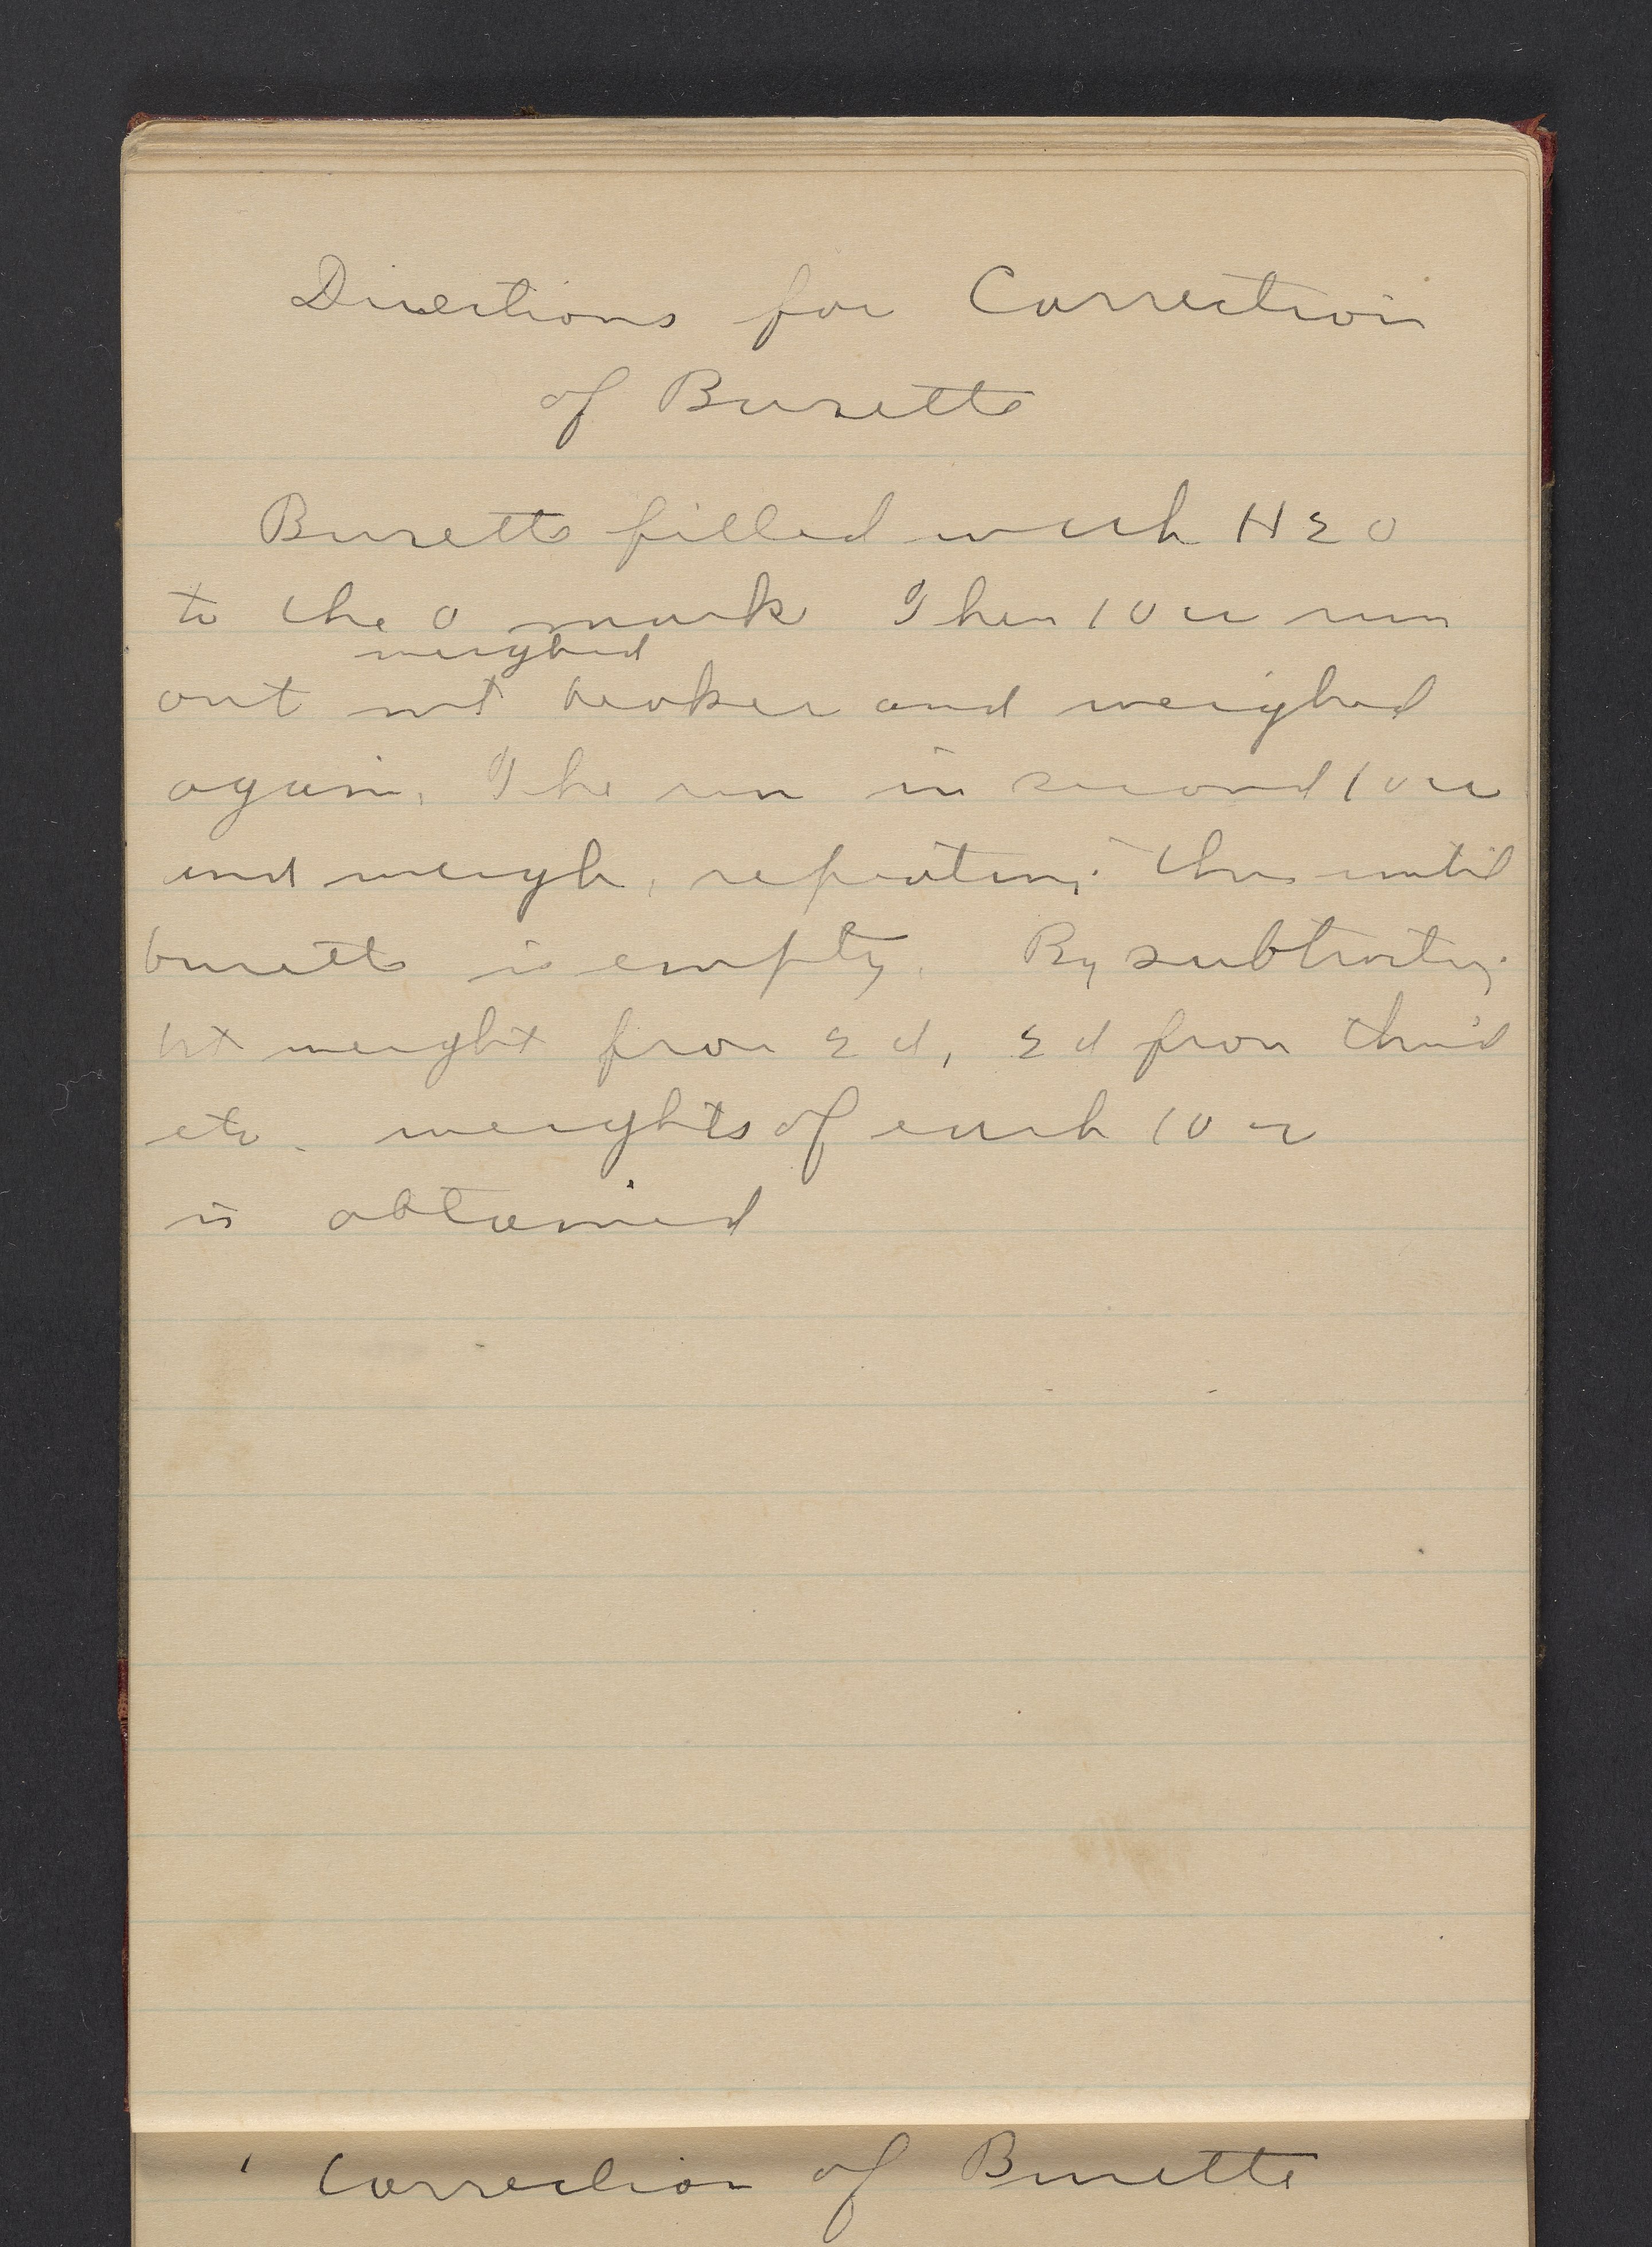 Directions for Correction
of Burette
Burette filled with H2O
to the 0 mark Then 10 cc run
weighed
out into beaker and weighed
again. The run in second 10 cc
and weigh, repeating this until
burette is empty. By subtracting
1st weight from 2d, 2d from third
etc. weights of each 10 cc
is obtained
Correction of Burette